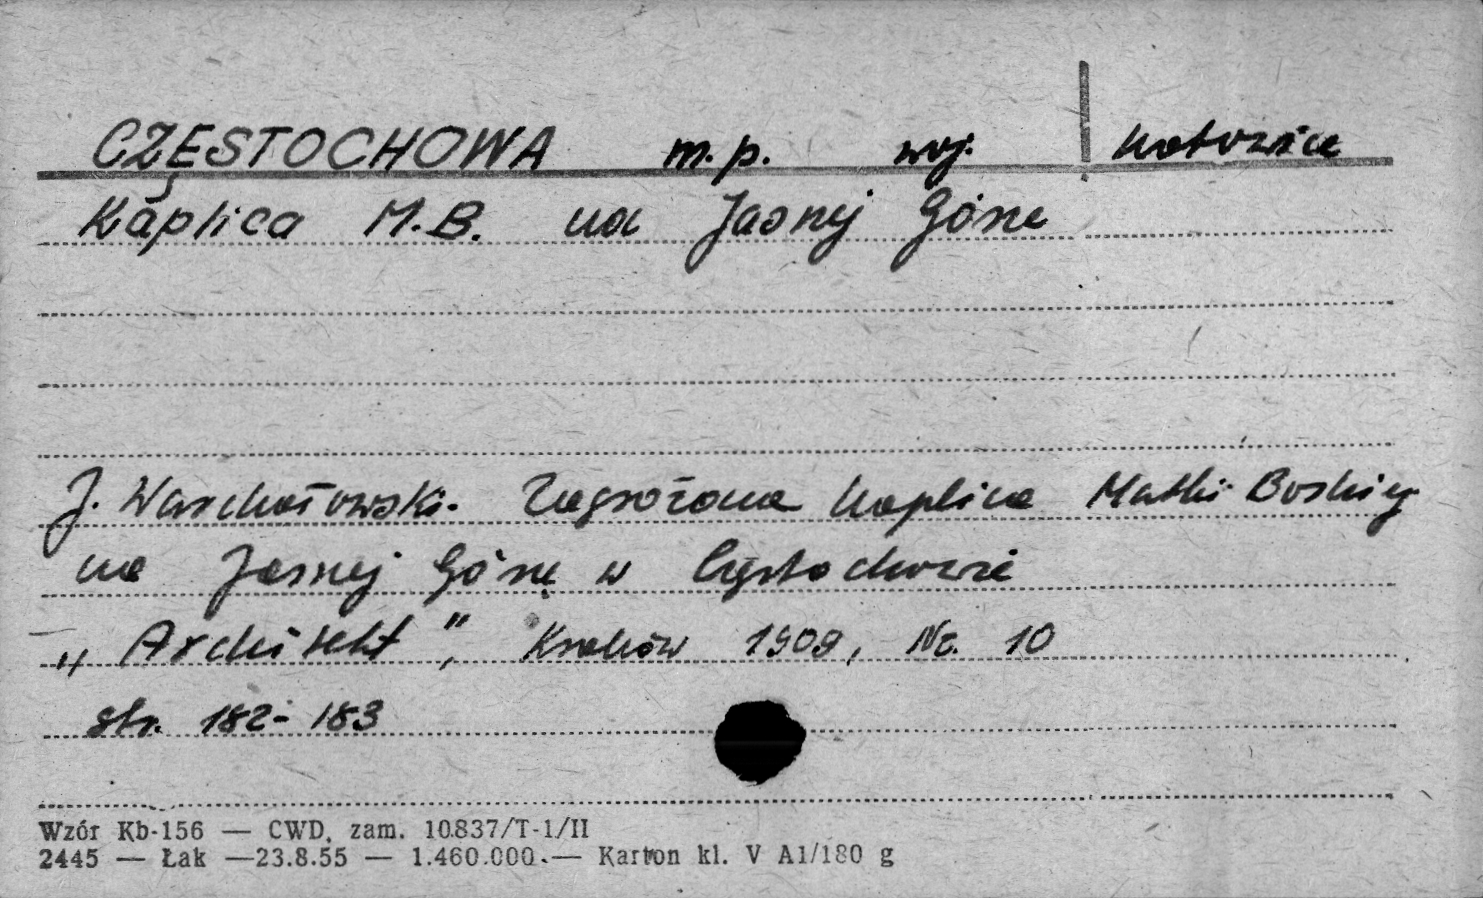 CZĘSTOCHOWA m.p. woj. Katowice
Kaplica M.B. na Jasnej Górze
J. Warchałowski. Zagrożona kaplica Matki Boskiej
na Jasnej Górze w Częstochowie
„Architekt", Kraków 1909, Nr. 10
str. 182-183
Wzór Kb-156 — CWD, zam. 10837/T-1/II
2445 — Łak —23.8.55 — 1.460.000.— Karton kl. V A1/180 g